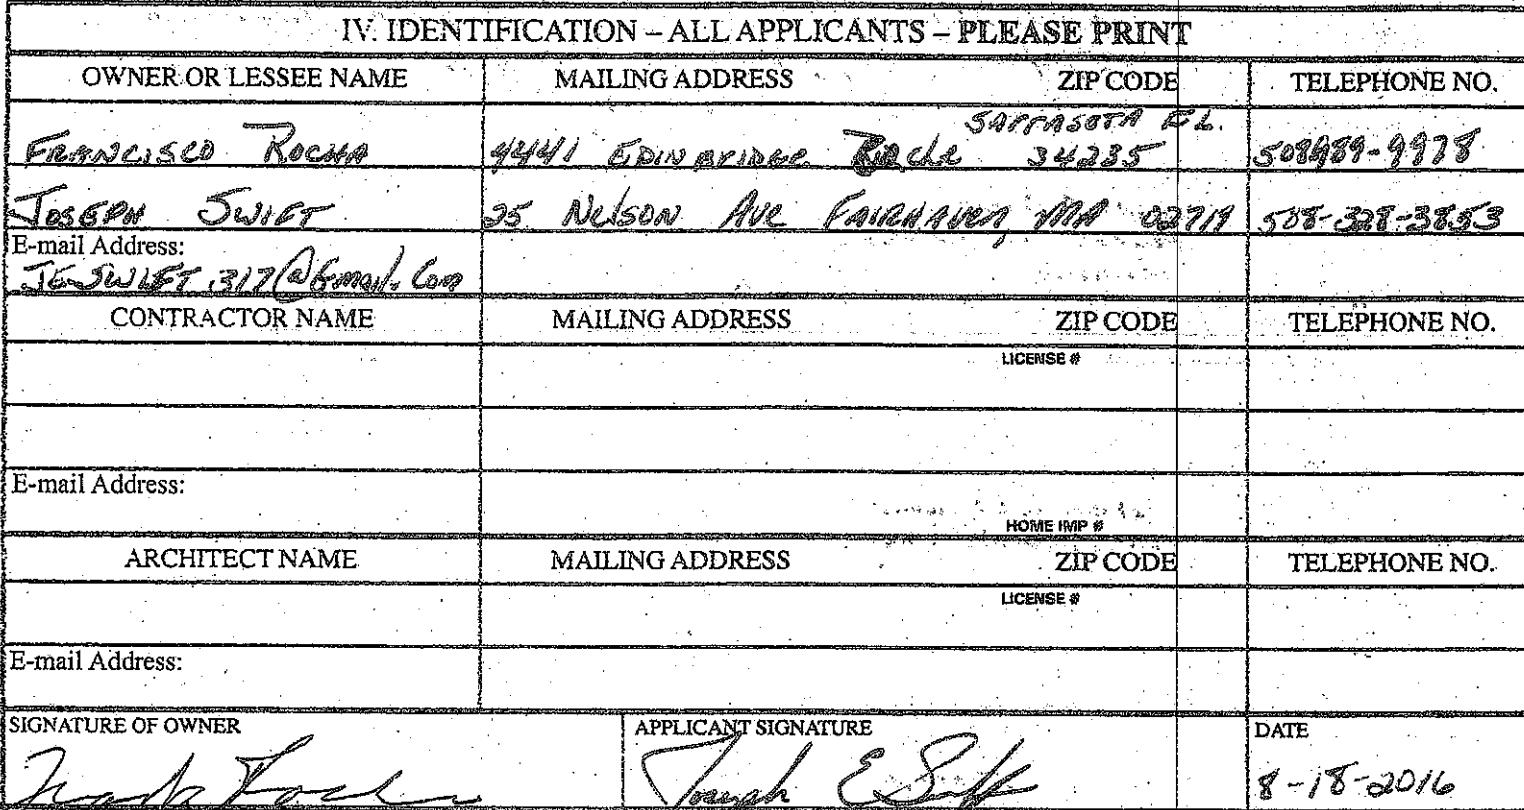 IV. IDENTIFICATION – ALL APPLICANTS – PLEASE PRINT
OWNER OR LESSEE NAME MAILING ADDRESS ZIP CODE TELEPHONE NO.
SARRASOTA FL.
FRANCISCO ROCHA 4441 EDINBRIDGE Circle 34235 508989-9978
JOSEPH SWIFT 25 Nelson Ave FAIRHAVEN, MA 02719 508-328-3853
E-mail Address:
JESWIFT.317@Gmail.Com
CONTRACTOR NAME MAILING ADDRESS ZIP CODE TELEPHONE NO.
LICENSE #
E-mail Address:
HOME IMP #
ARCHITECT NAME MAILING ADDRESS ZIP CODE TELEPHONE NO.
LICENSE #
E-mail Address:
SIGNATURE OF OWNER APPLICANT SIGNATURE DATE
Joseph E Swift 8-18-2016